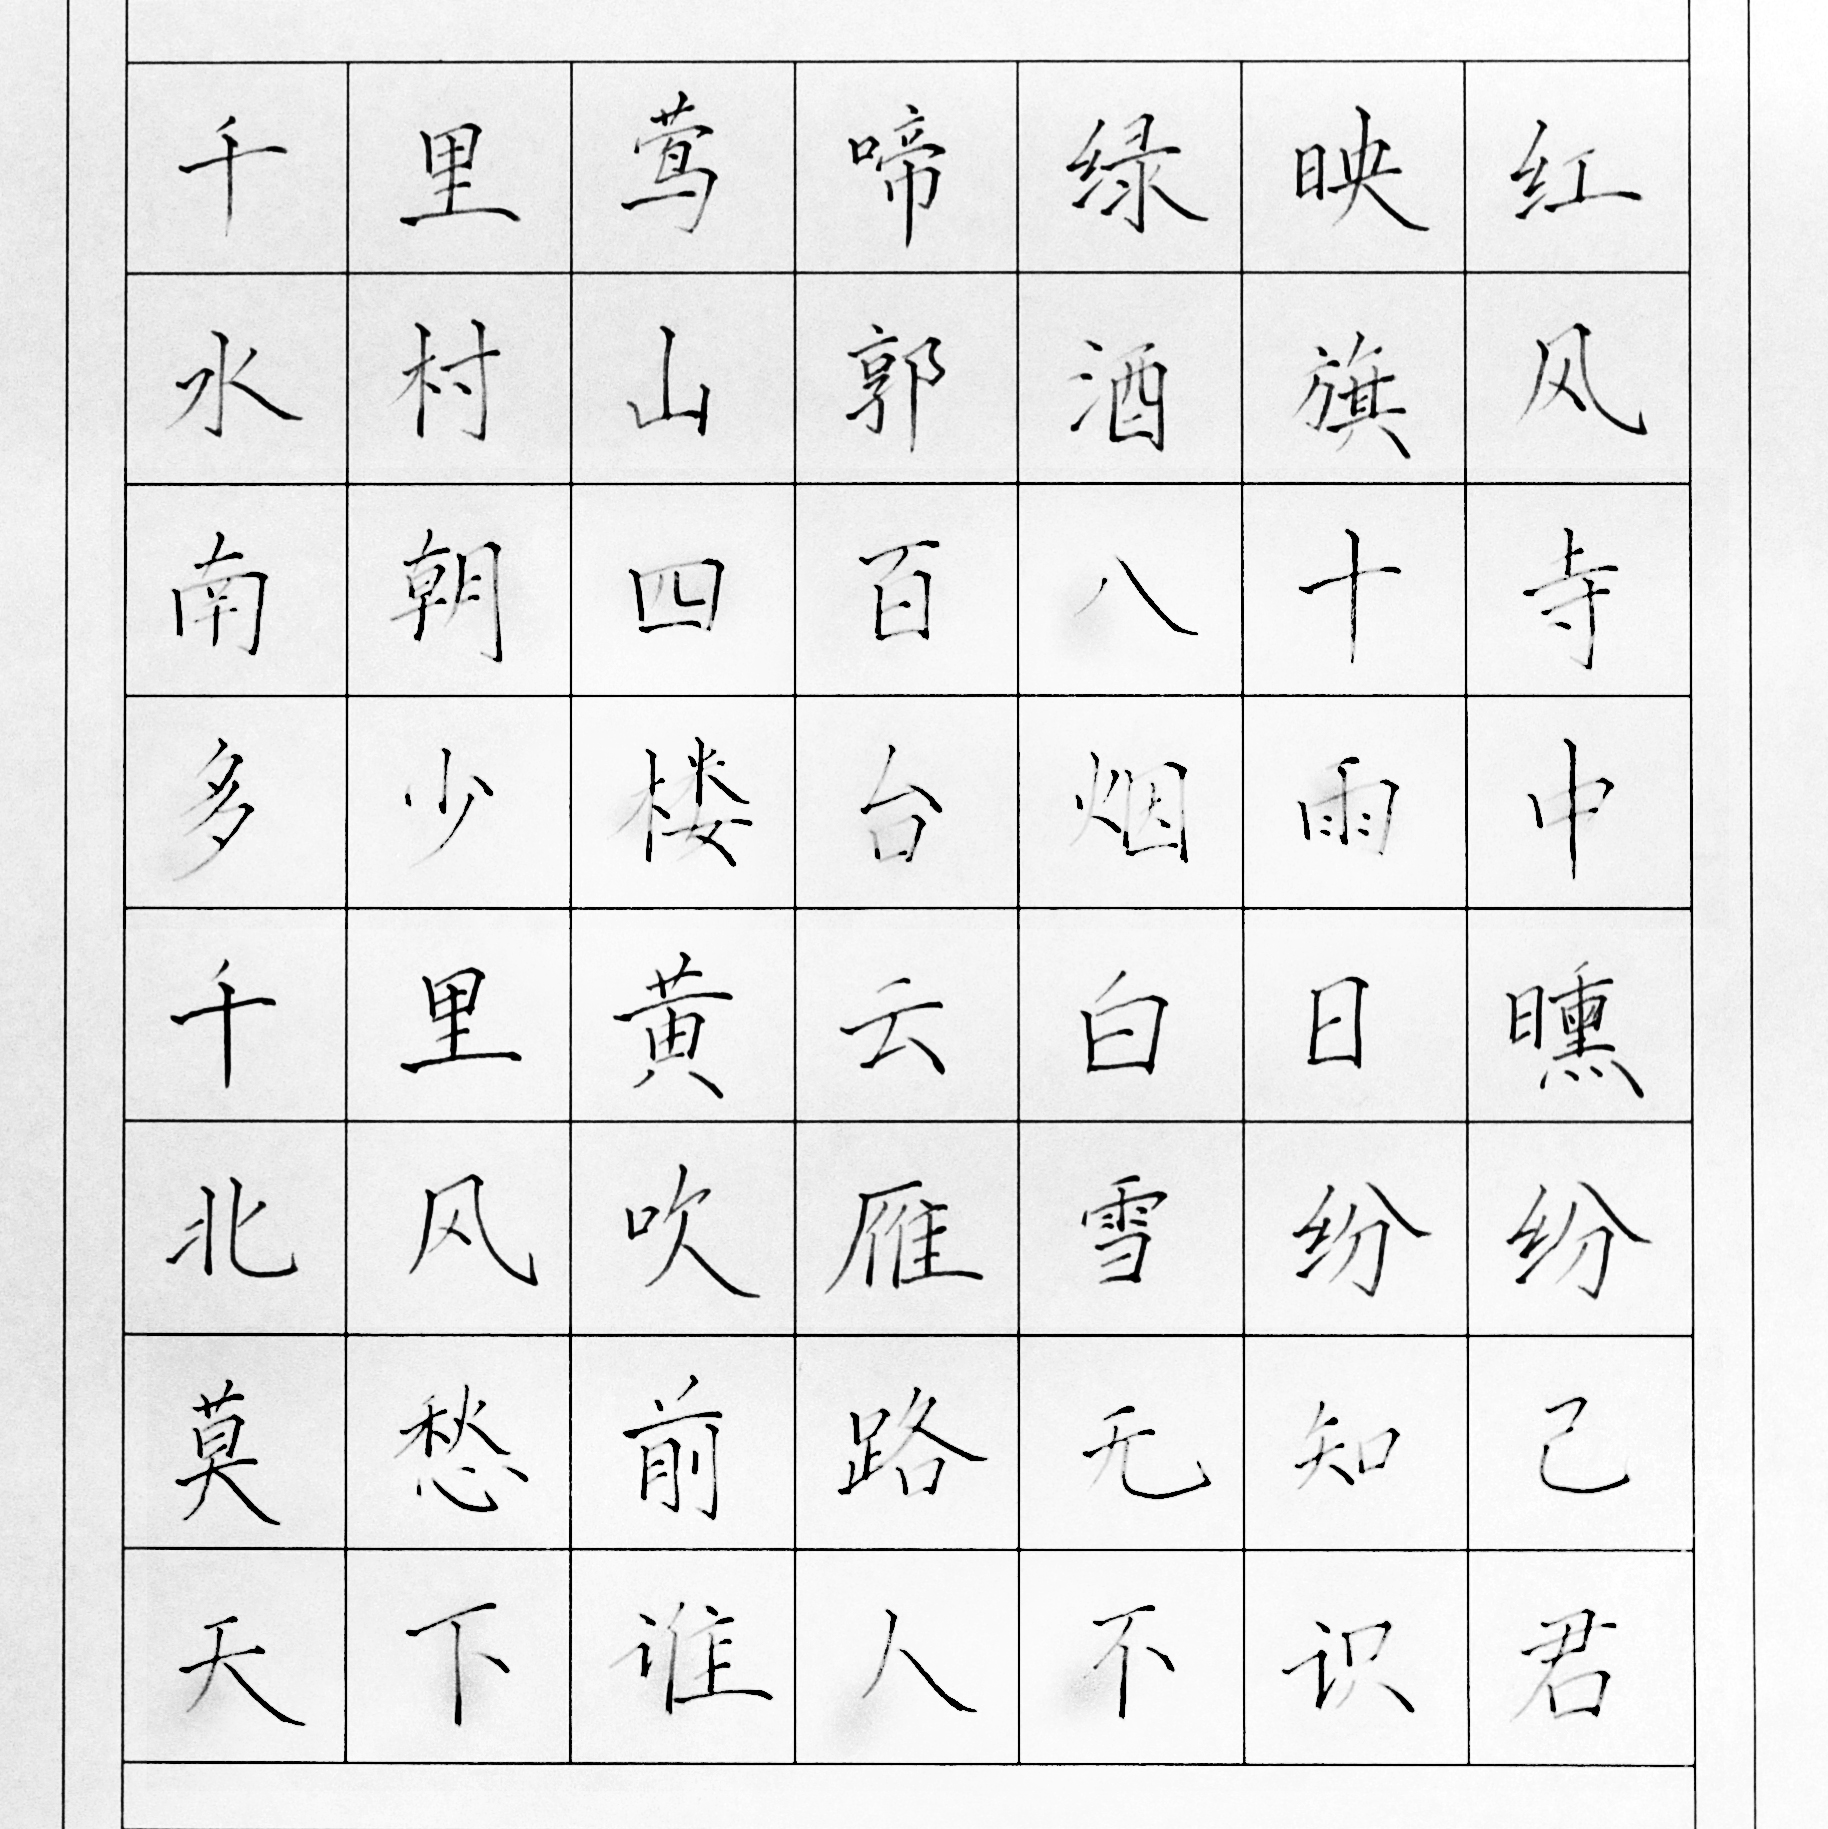 千里莺啼绿映红
水村山郭酒旗风
南朝四百八十寺
多少楼台烟雨中
千里黄云白日曛
北风吹雁雪纷纷
莫愁前路无知己
天下谁人不识君